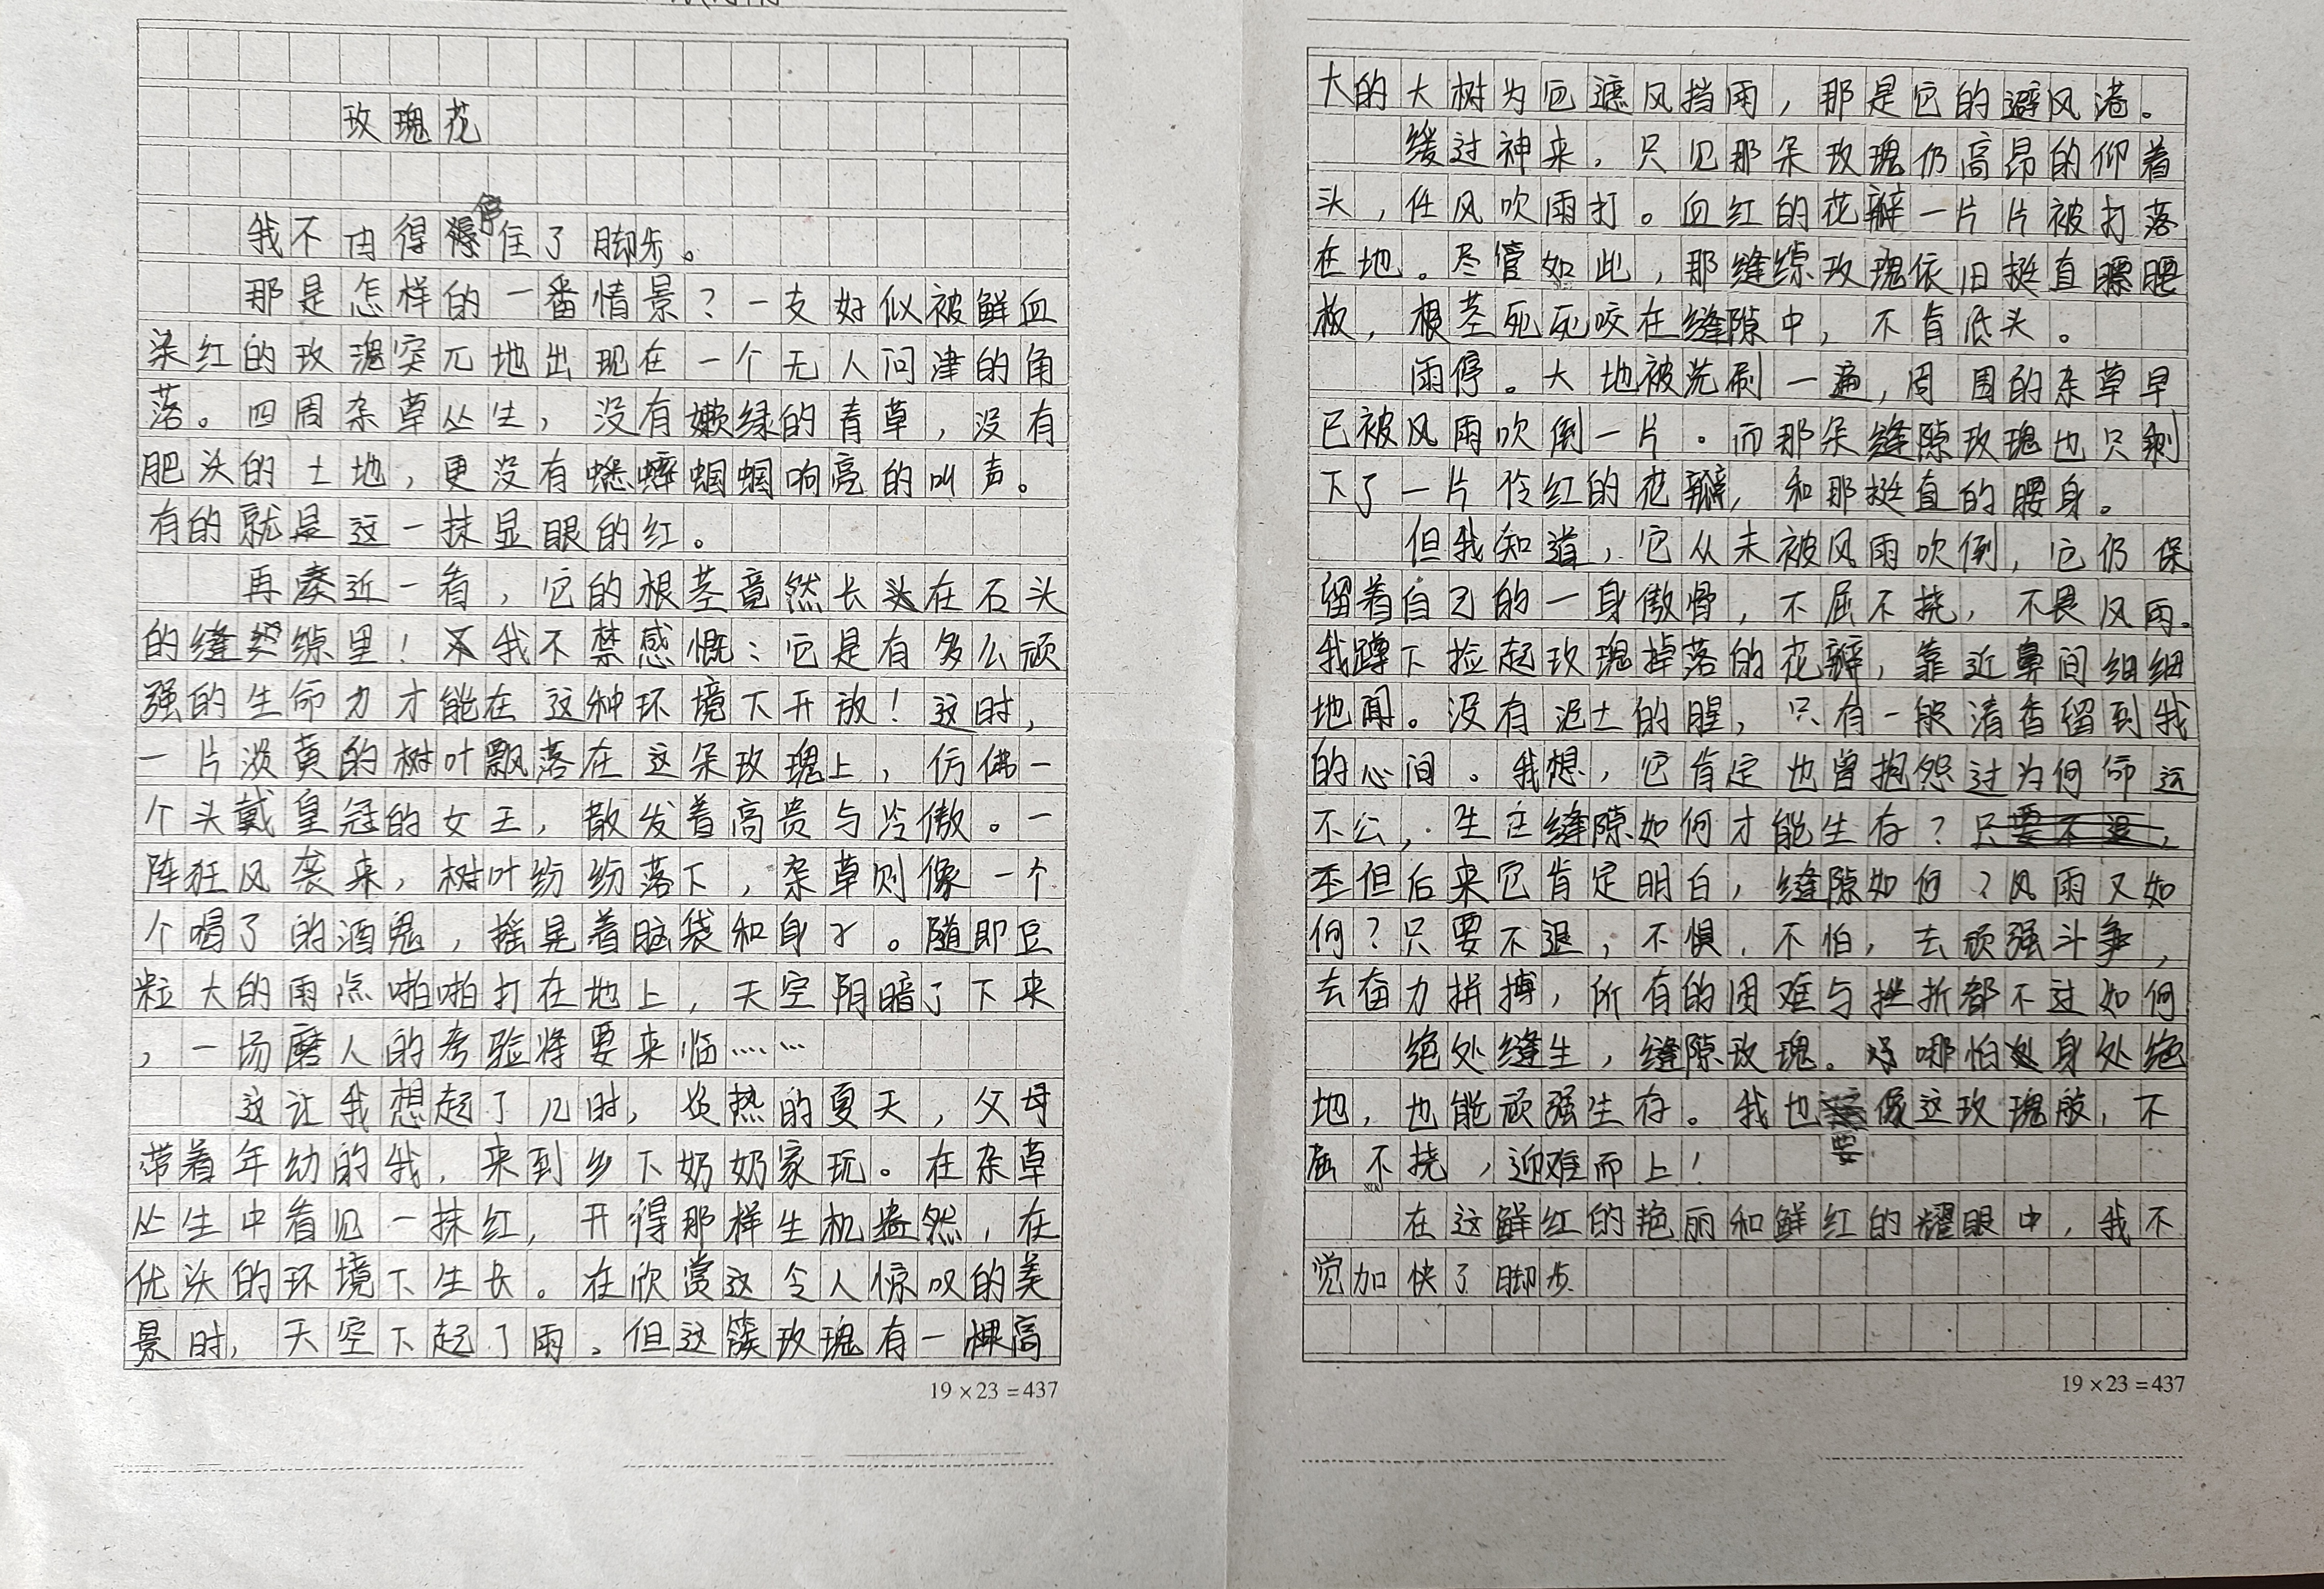 玫瑰花
我不由得停住了脚步。
那是怎样的一番情景？一支好似被鲜血
染红的玫瑰突兀地出现在一个无人问津的角
落。四周杂草丛生，没有嫩绿的青草，没有
肥沃的土地，更没有蟋蟀蝈蝈响亮的叫声。
有的就是这一抹显眼的红。
再凑近一看，它的根茎竟然长在石头
的缝隙里！我不禁感慨：它是有多么顽
强的生命力才能在这种环境下开放！这时，
一片淡黄的树叶飘落在这朵玫瑰上，仿佛一
个头戴皇冠的女王，散发着高贵与冷傲。一
阵狂风袭来，树叶纷纷落下，杂草则像一个
个喝了的酒鬼，摇晃着脑袋和身子。随即豆
粒大的雨点啪啪打在地上，天空阴暗了下来
，一场磨人的考验将要来临……
这让我想起了儿时，炎热的夏天，父母
带着年幼的我，来到乡下奶奶家玩。在杂草
丛生中看见一抹红，开得那样生机盎然，在
优沃的环境下生长。在欣赏这令人惊叹的美
景时，天空下起了雨。但这簇玫瑰有一棵高
大的大树为它遮风挡雨，那是它的避风港。
缓过神来，只见那朵玫瑰仍高昂的仰着
头，任风吹雨打。血红的花瓣一片片被打落
在地。尽管如此，那缝隙玫瑰依旧挺直腰
板，根茎死死咬在缝隙中，不肯低头。
雨停。大地被洗刷一遍，周围的杂草早
已被风雨吹倒一片。而那朵缝隙玫瑰也只剩
下了一片伶红的花瓣，和那挺直的腰身。
但我知道，它从未被风雨吹倒，它仍保
留着自己的一身傲骨，不屈不挠，不畏风雨。
我蹲下捡起玫瑰掉落的花瓣，靠近鼻间细细
地闻。没有泥土的腥，只有一般清香留到我
的心间。我想，它肯定也曾抱怨过为何命运
不公，生在缝隙如何才能生存？
但后来它肯定明白，缝隙如何？风雨又如
何？只要不退，不惧，不怕，去顽强斗争，
去奋力拼搏，所有的困难与挫折都不过如何
绝处缝生，缝隙玫瑰。哪怕身处绝
地，也能顽强生存。我也要像这玫瑰般，不
屈不挠，迎难而上！
在这鲜红的艳丽和鲜红的耀眼中，我不
觉加快了脚步
19×23=437
19×23=437